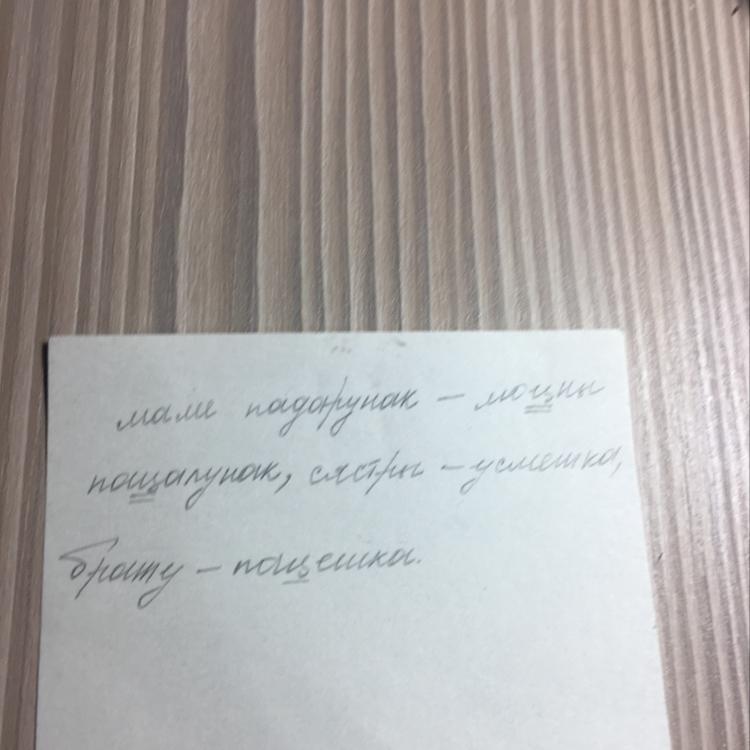 маме падарунак – моцны
пацалунак, сястры – усмешка,
брату – пацешка.